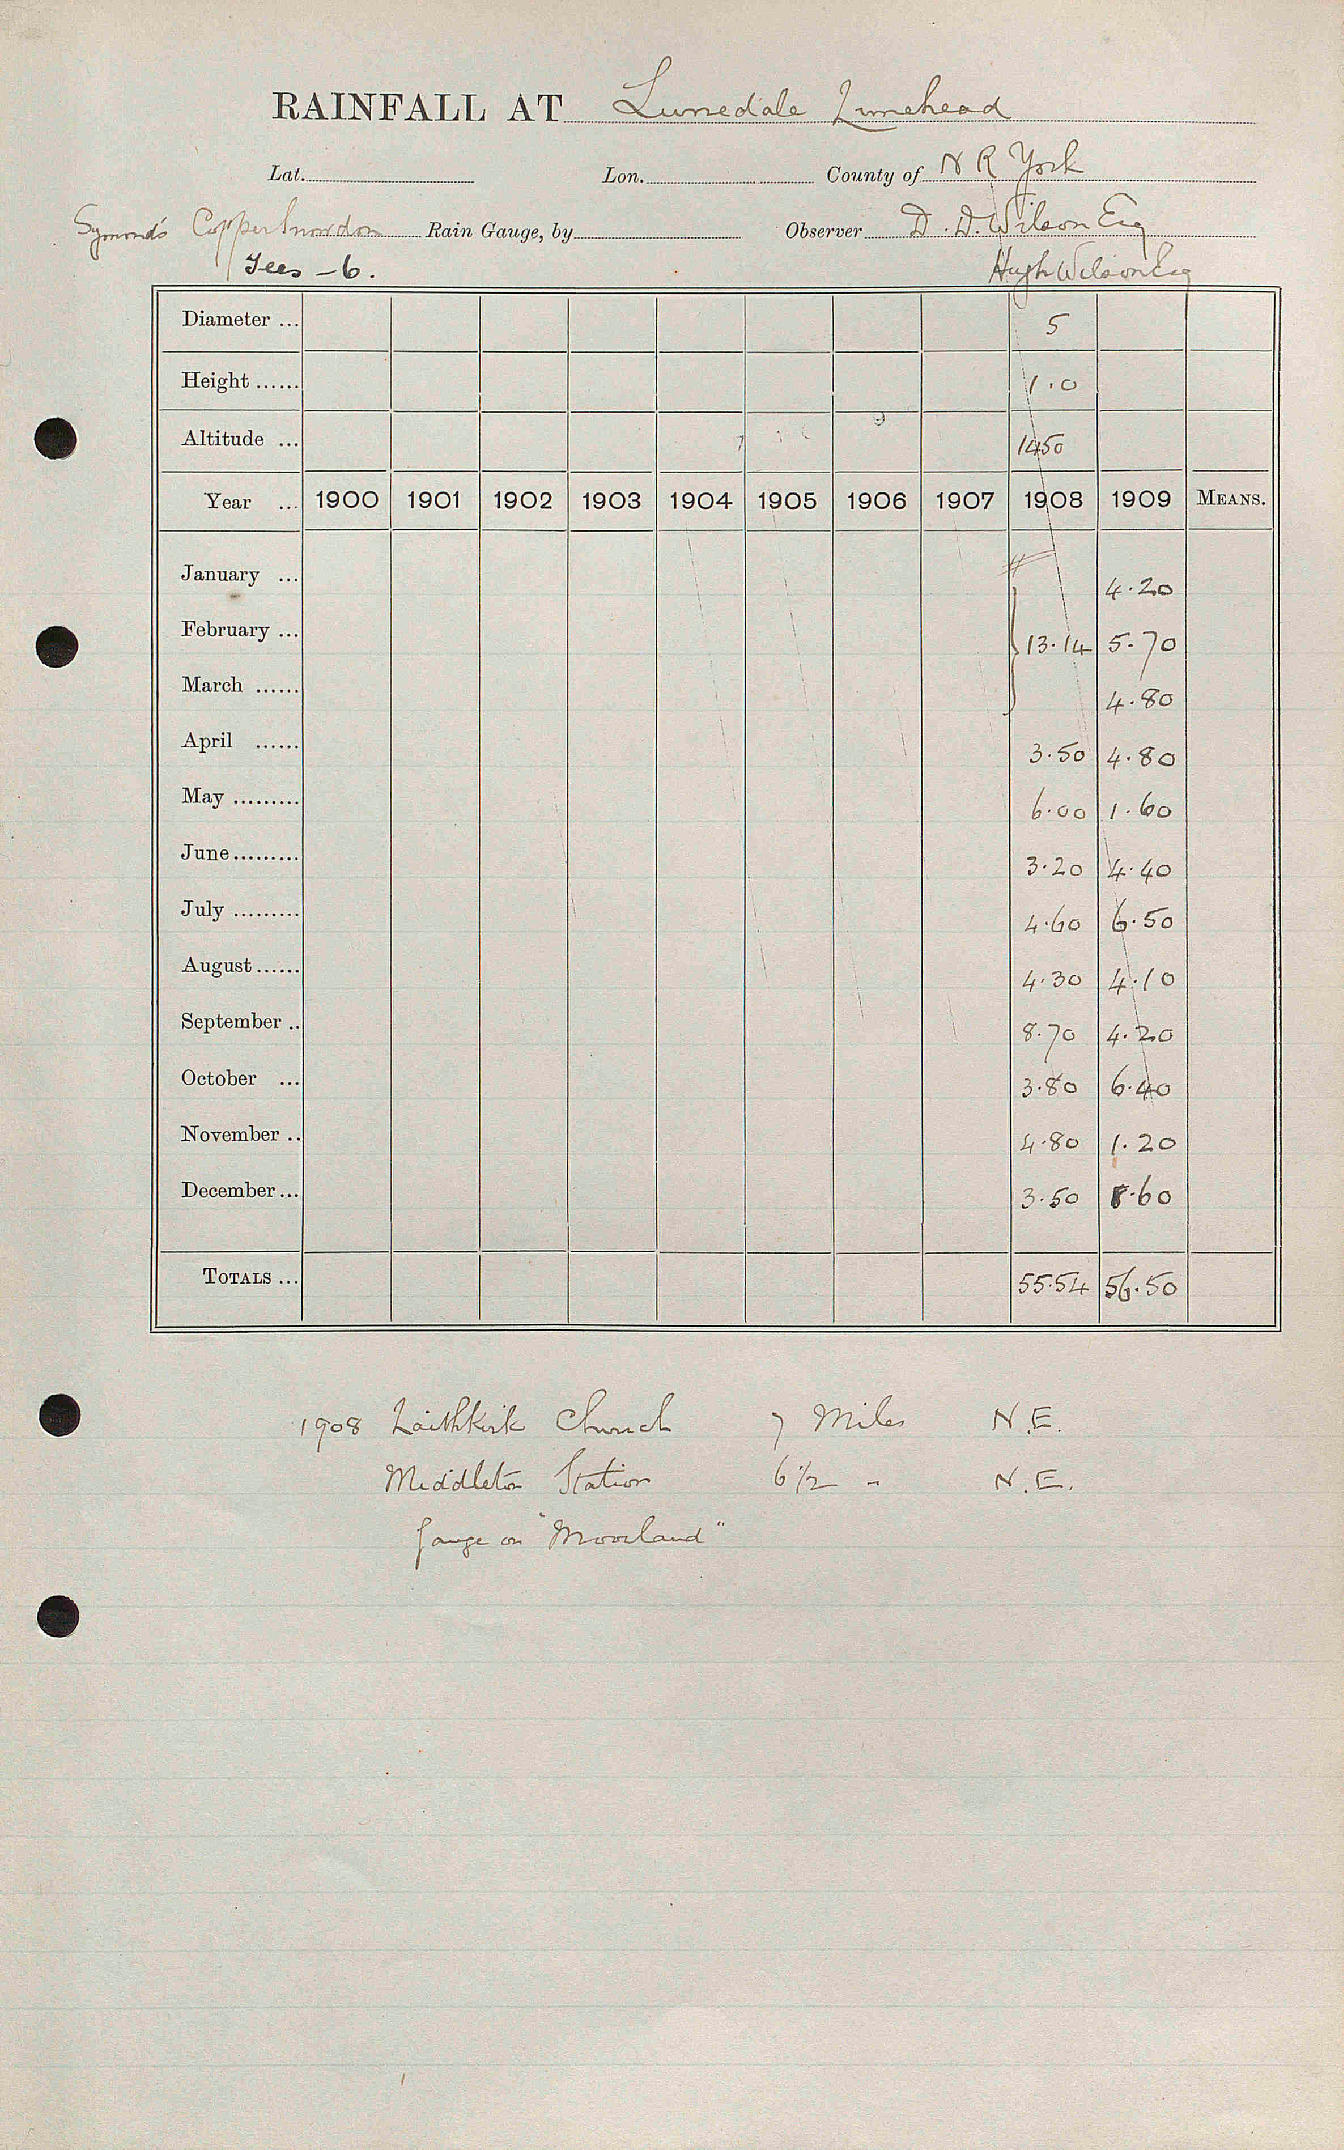 RAINFALL AT Lunedale Lunehead
Lat. Lon. County of N R York
Symond's Copper Snowdon Rain Gauge, by Observer D. D. Wilson Esq
Tees - 6. Hugh Wilson Esq
Diameter ... 5
Height ...... 1.0
Altitude ... 1450
Year ... 1900 1901 1902 1903 1904 1905 1906 1907 1908 1909 MEANS.
January ... 4.20
February ... 13.14 5.70
March ...... 4.80
April ...... 3.50 4.80
May ......... 6.00 1.60
June ......... 3.20 4.40
July ......... 4.60 6.50
August ...... 4.30 4.10
September .. 8.70 4.20
October ... 3.80 6.40
November .. 4.80 1.20
December ... 3.50 8.60
TOTALS ... 55.54 56.50
1908 Laithkirk Church 7 Miles N.E.
Middleton Station 6 1/2 " N.E.
Gauge on "Moorland"